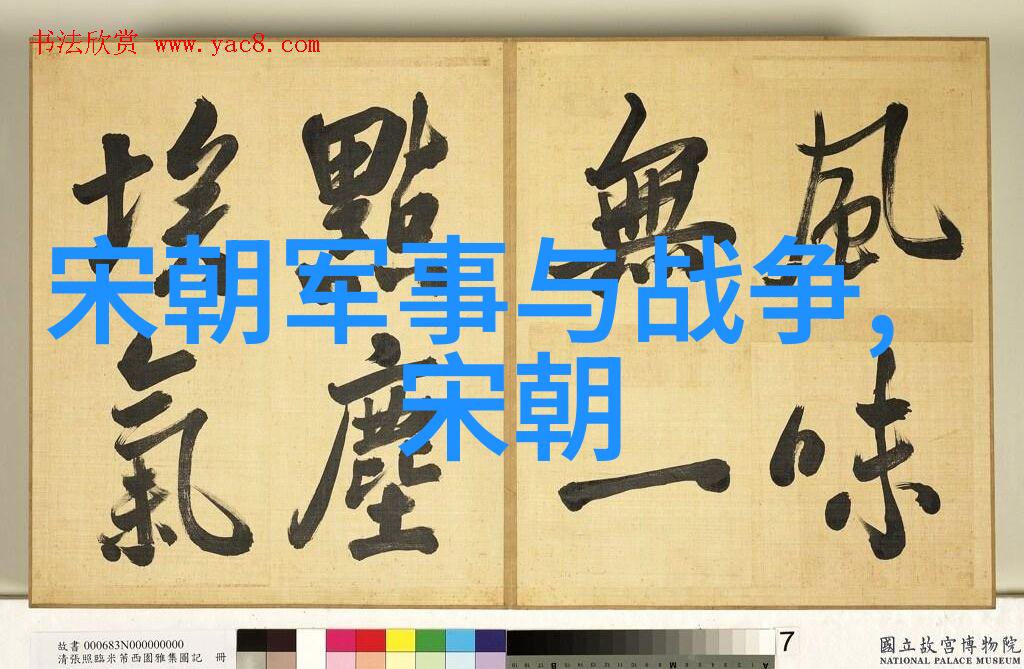 书法欣赏 www.yac8.com
風味
無一
點塵
埃氣
宋朝军事与战争,
宋朝
故書 000683N000000000
清張照臨米芾西園雅集圖記 冊
7
國立故宮博物院
NATIONAL PALACE MUSEUM